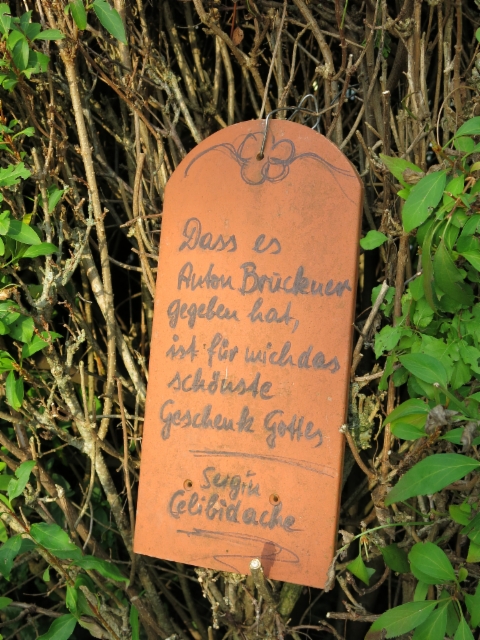 Dass es
Anton Brückner
gegeben hat,
ist für mich das
schönste
Geschenk Gottes
Sergiu
Celibidache